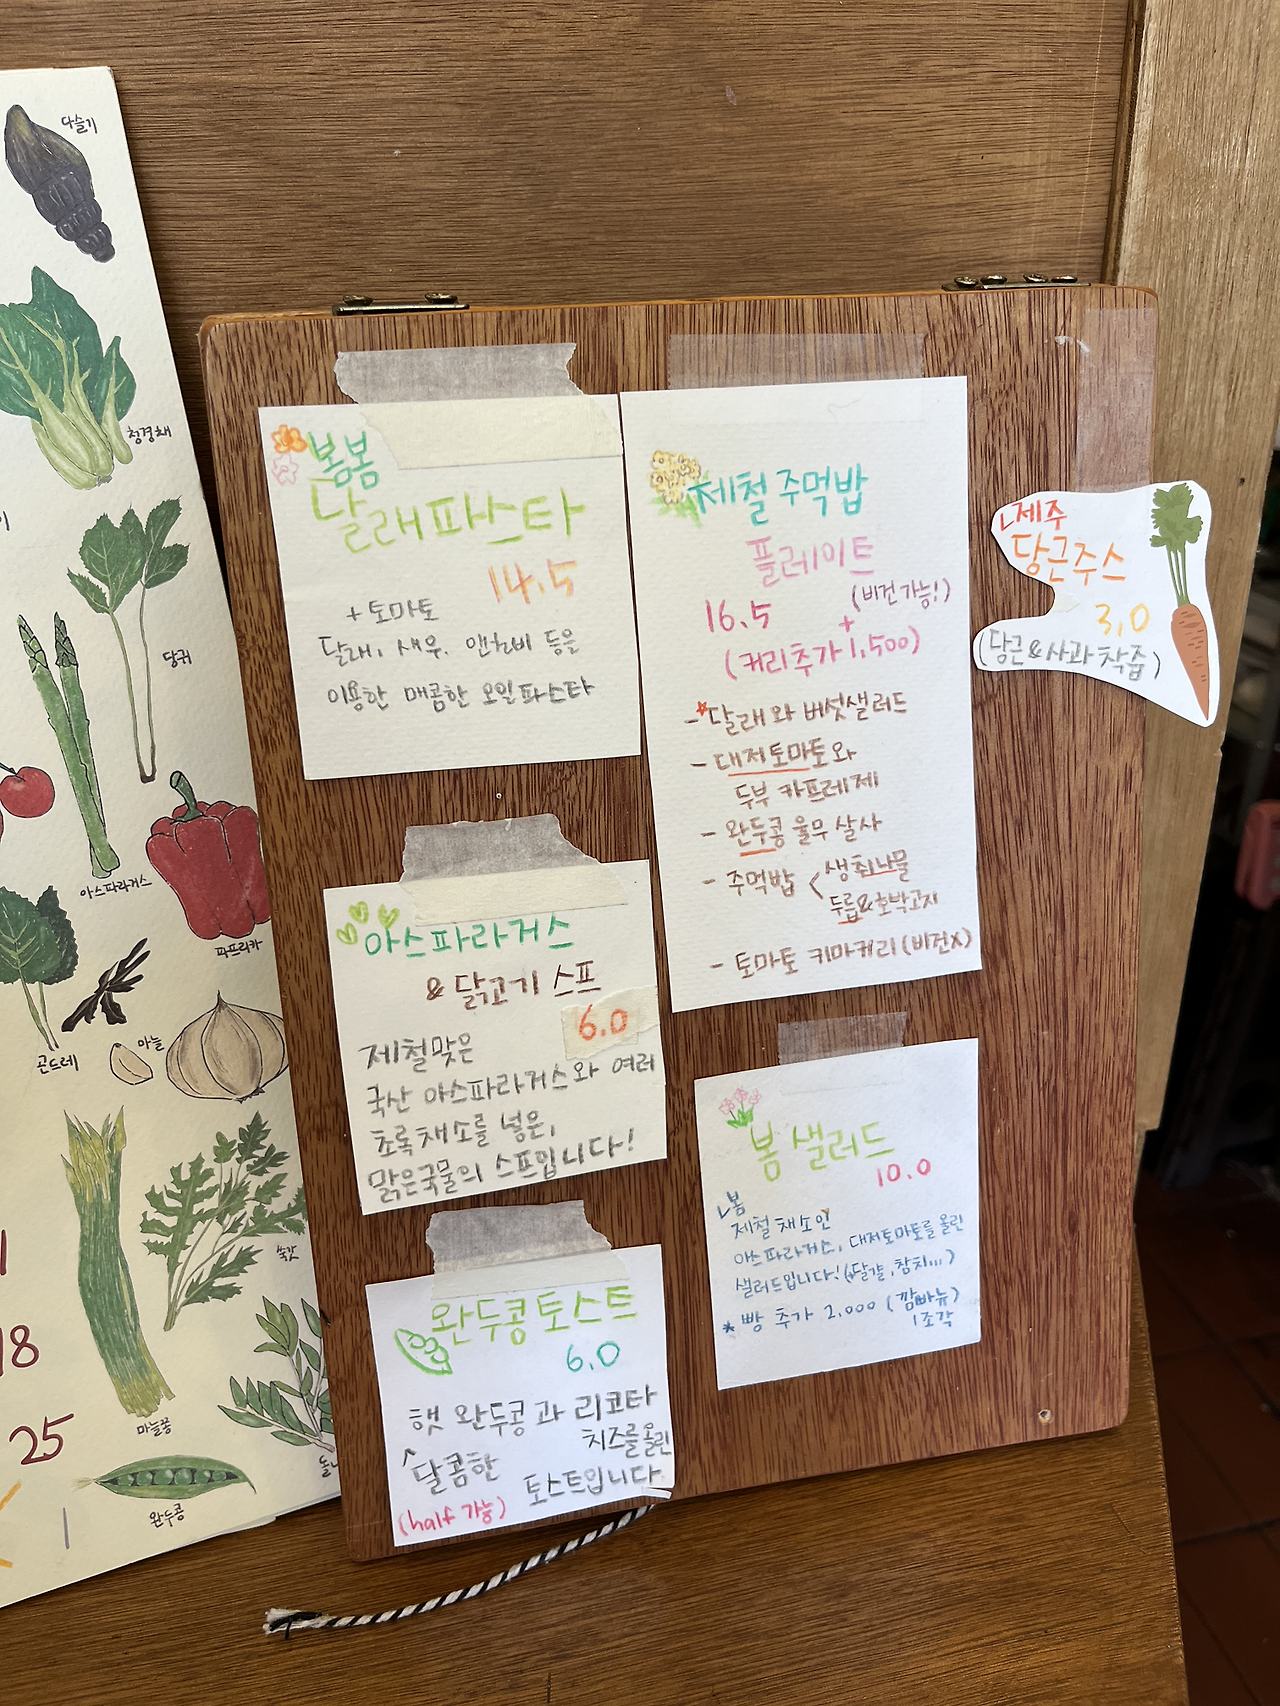 다슬기
청경채
당귀
아스파라거스
파프리카
곤드레
마늘
쑥갓
마늘쫑
완두콩
18
25
봄봄
달래파스타
14.5
+ 토마토
달래, 새우, 앤초비 등을
이용한 매콤한 오일파스타
아스파라거스
& 닭고기 스프
6.0
제철맞은
국산 아스파라거스와 여러
초록채소를 넣은,
맑은국물의 스프입니다!
완두콩토스트
6.0
햇 완두콩과 리코타
치즈를 올린
달콤한
토스트입니다
(half 가능)
제철 주먹밥
플레이트
(비건가능!)
16.5
+
(커리추가 1,500)
- 달래와 버섯샐러드
- 대저토마토와
두부 카프레제
- 완두콩 율무 살사
- 주먹밥 < 생취나물
두릅&호박고지
- 토마토 키마커리 (비건X)
봄 샐러드
10.0
봄
제철 채소인
아스파라거스, 대저토마토를 올린
샐러드입니다! (+달걀, 참치...)
* 빵 추가 2,000 (깜빠뉴)
1조각
제주
당근주스
3.0
(당근&사과 착즙)